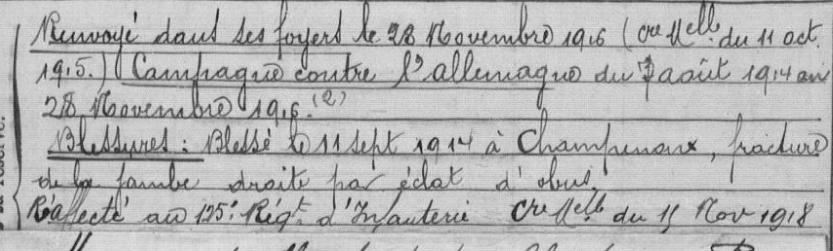 Renvoyé dans ses foyers le 28 Novembre 1916 (Cre Melle du 11 oct.
1915.) Campagne contre l'allemagne du 7 août 1914 au
28 Novembre 1916. (2)
Blessures : Blessé le 11 sept 1914 à Champenoux, fracture
de la jambe droite par éclat d'obus.
Réaffecté au 125e Régt d'Infanterie Cre Melle du 11 Nov 1918